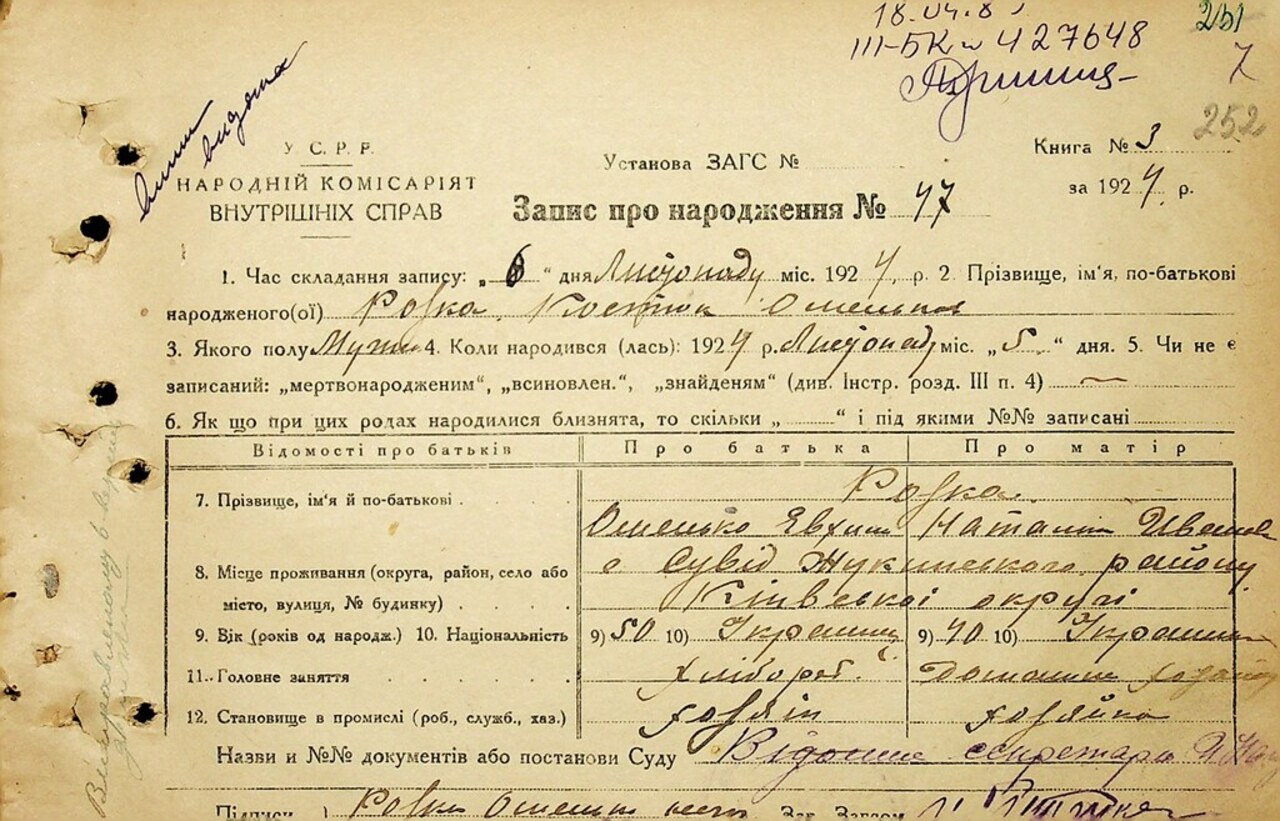 251
III-БК № 427648
7
252
видана
У. С. Р. Р.
НАРОДНІЙ КОМІСАРІЯТ
ВНУТРІШНІХ СПРАВ
Установа ЗАГС №
Книга № 3
за 1924 р.
Запис про народження № 47
1. Час складання запису: „6“ дня Листопаду міс. 1924 р. 2. Прізвище, ім'я, по-батькові
народженого(ої)
3. Якого полу Муж. 4. Коли народився (лась): 1924 р. Листопаду міс. „5“ дня. 5. Чи не є
записаний: „мертвонародженим“, „всиновлен.“, „знайденям“ (див. Інстр. розд. III п. 4) —
6. Як що при цих родах народилися близнята, то скільки „ “ і під якими №№ записані
Відомості про батьків
Про батька
Про матір
7. Прізвище, ім'я й по-батькові
Наталія
8. Місце проживання (округа, район, село або
місто, вулиця, № будинку)
с Сувід Жукинського району
Київської округи
9. Вік (років од народж.) 10. Національність
9) 50 10) Українець
9) 40 10) Українка
11. Головне заняття
хлібороб.
Домашнє
12. Становище в промислі (роб., служб., хаз.)
хозяїн
хозяйка
Назви и №№ документів або постанови Суду
секретаря
Підписи